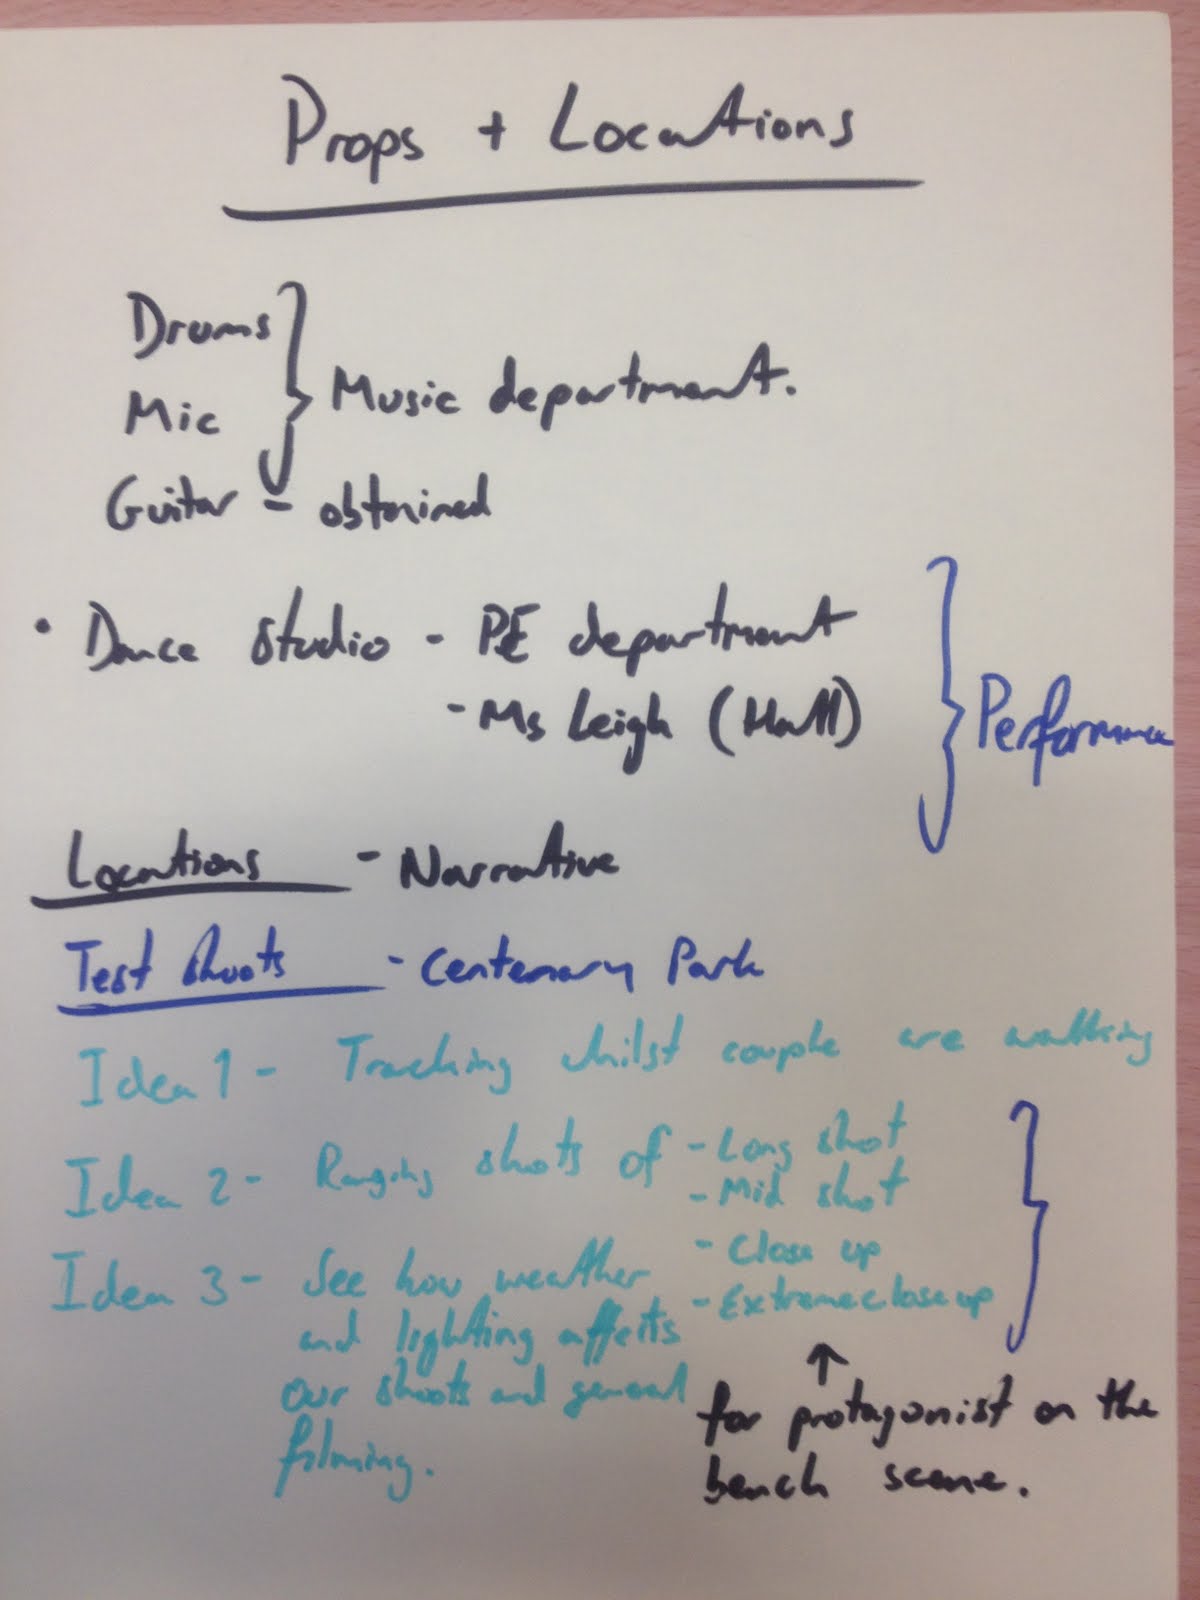 Props + Locations
Drums
Mic
Music department.
Guitar - obtained
• Dance Studio - PE department
- Ms Leigh (Hall)
Performance
Locations - Narrative
Test Shoots - Centenary Park
Idea 1 - Tracking whilst couple are walking
Idea 2 - Ranging shots of - Long shot
- Mid shot
- Close up
- Extreme close up
Idea 3 - See how weather
and lighting affects
our shoots and general
filming.
↑
for protagonist on the
bench scene.